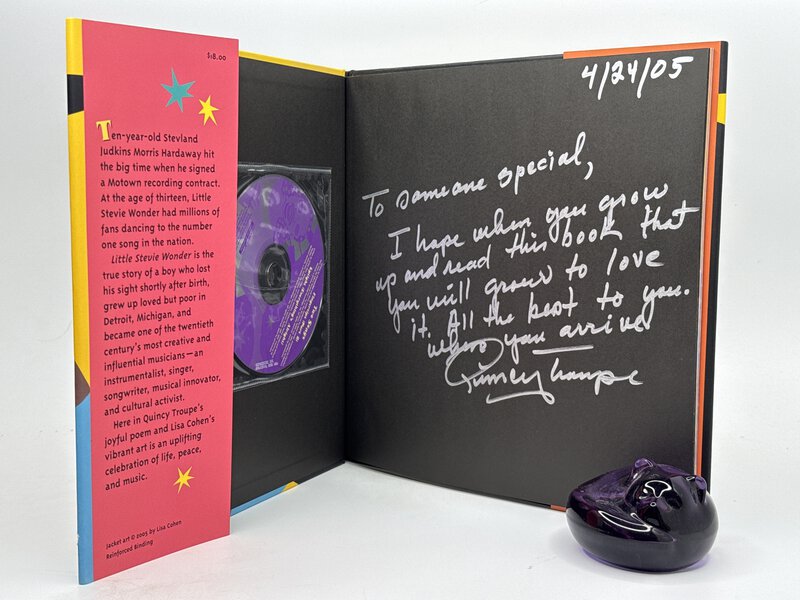 $18.00
Ten-year-old Stevland
Judkins Morris Hardaway hit
the big time when he signed
a Motown recording contract.
At the age of thirteen, Little
Stevie Wonder had millions of
fans dancing to the number
one song in the nation.
Little Stevie Wonder is the
true story of a boy who lost
his sight shortly after birth,
grew up loved but poor in
Detroit, Michigan, and
became one of the twentieth
century's most creative and
influential musicians—an
instrumentalist, singer,
songwriter, musical innovator,
and cultural activist.
Here in Quincy Troupe's
joyful poem and Lisa Cohen's
vibrant art is an uplifting
celebration of life, peace,
and music.
Jacket art © 2005 by Lisa Cohen
Reinforced Binding
4/24/05
To someone special,
I hope when you grow
up and read this book that
you will grow to love
it. All the best to you.
when you arrive
Quincy Troupe